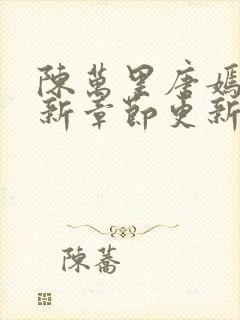 陳萬里唐嫣
新章節更新
陳蕎